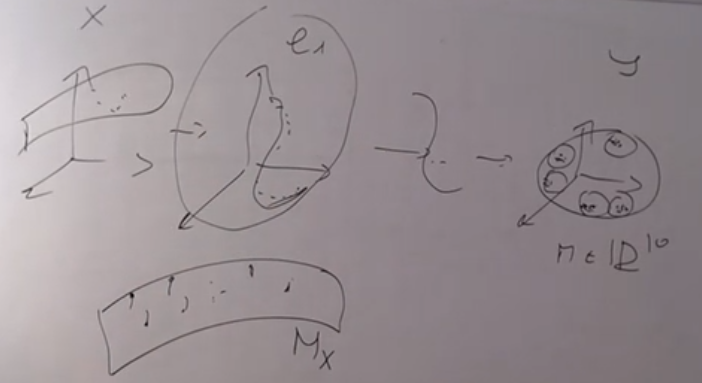 x
e₁
y
n ∈ ℝ¹⁰
Mx